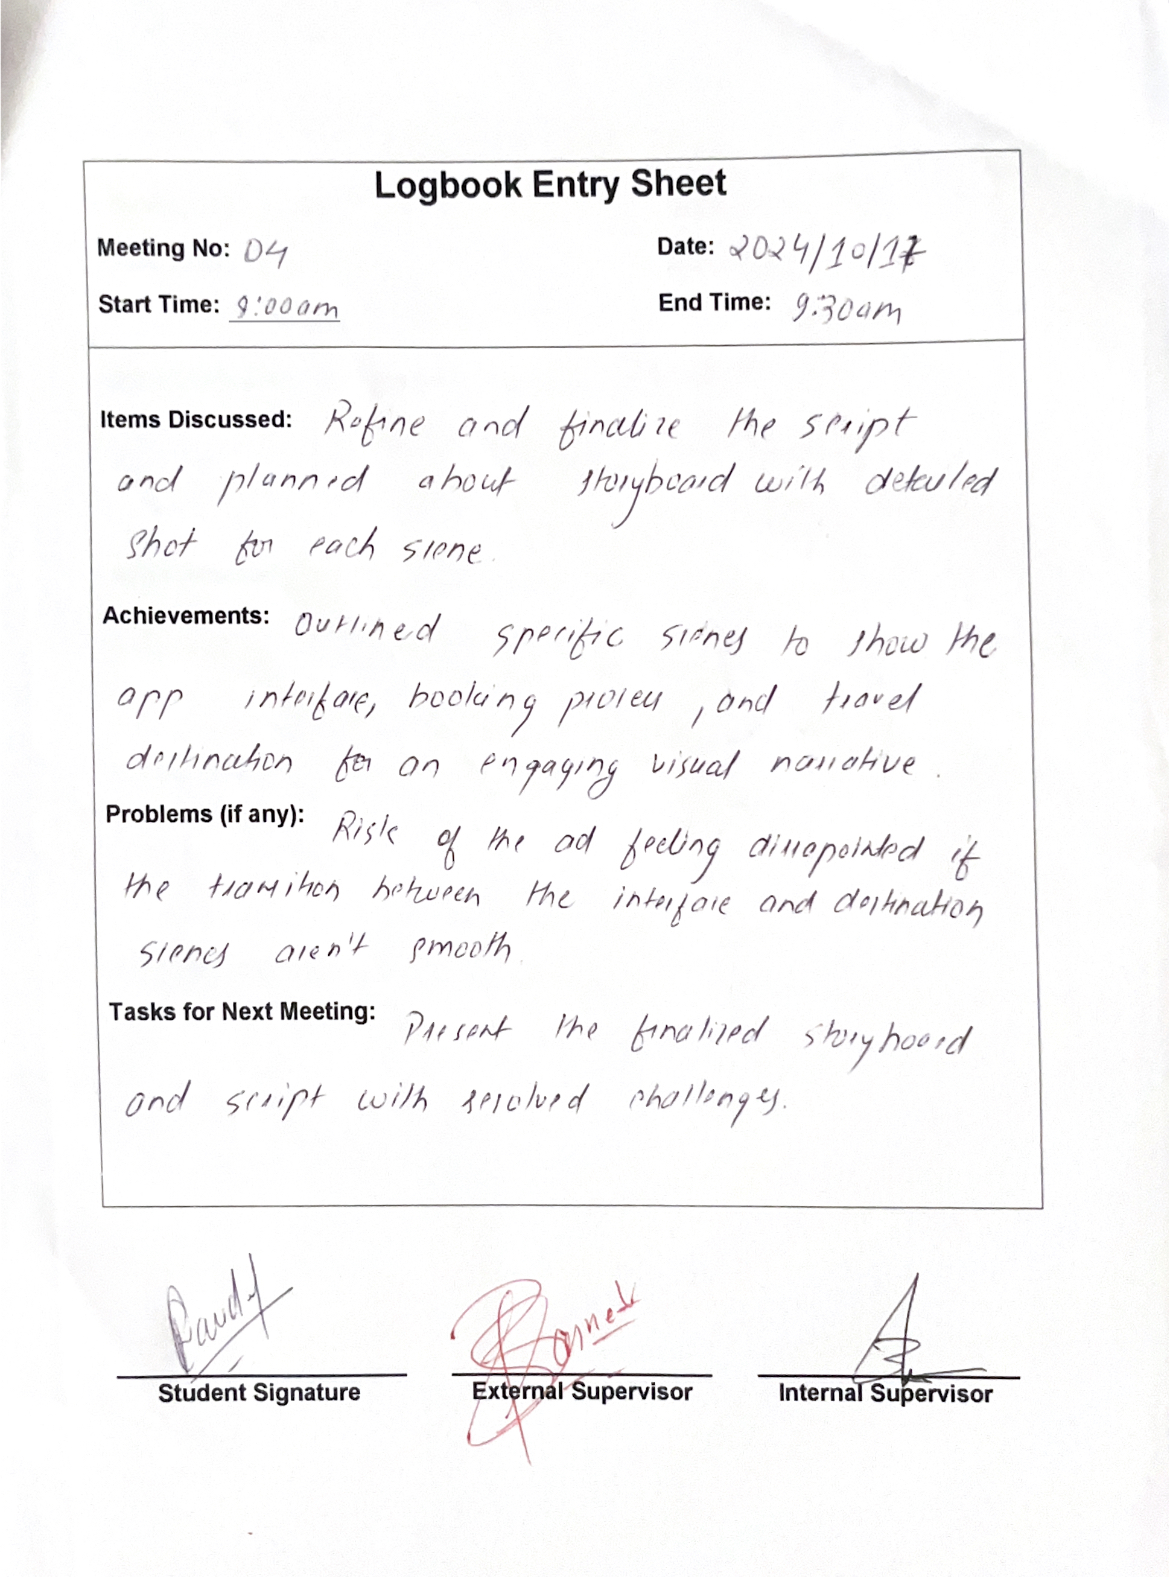 Logbook Entry Sheet
Meeting No: 04 Date: 2024/10/17
Start Time: 9:00am End Time: 9:30am
Items Discussed: Refine and finalize the script
and planned about storyboard with detailed
shot for each scene.
Achievements: Outlined specific scenes to show the
app interface, booking process, and travel
destination for an engaging visual narrative.
Problems (if any): Risk of the ad feeling dissapointed if
the transition between the interface and destination
scenes aren't smooth.
Tasks for Next Meeting: Present the finalized storyboard
and script with resolved challenges.
Student Signature External Supervisor Internal Supervisor